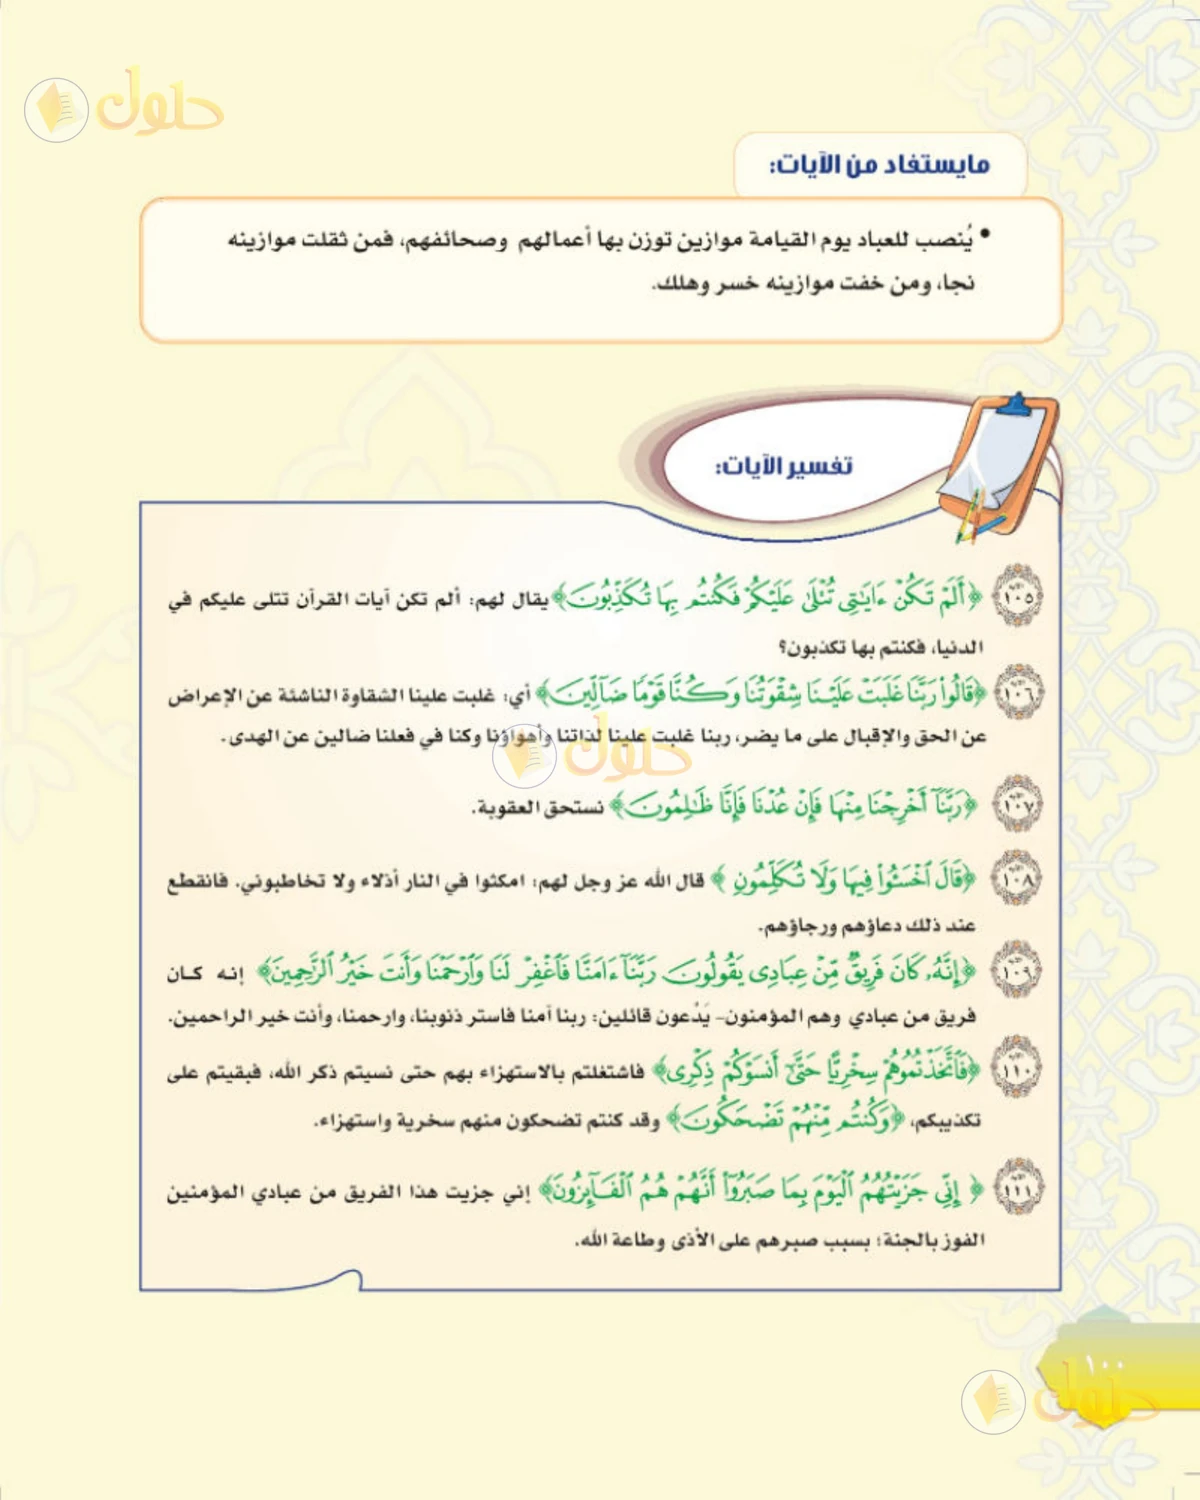 حلول
مايستفاد من الآيات:
• يُنصب للعباد يوم القيامة موازين توزن بها أعمالهم وصحائفهم، فمن ثقلت موازينه
نجا، ومن خفت موازينه خسر وهلك.
تفسير الآيات:
١٠٥ ﴿أَلَمْ تَكُنْ ءَايَٰتِى تُتْلَىٰ عَلَيْكُمْ فَكُنتُم بِهَا تُكَذِّبُونَ﴾ يقال لهم: ألم تكن آيات القرآن تتلى عليكم في
الدنيا، فكنتم بها تكذبون؟
١٠٦ ﴿قَالُوا۟ رَبَّنَا غَلَبَتْ عَلَيْنَا شِقْوَتُنَا وَكُنَّا قَوْمًا ضَآلِّينَ﴾ أي: غلبت علينا الشقاوة الناشئة عن الإعراض
عن الحق والإقبال على ما يضر، ربنا غلبت علينا لذاتنا وأهواؤنا وكنا في فعلنا ضالين عن الهدى.
حلول
١٠٧ ﴿رَبَّنَآ أَخْرِجْنَا مِنْهَا فَإِنْ عُدْنَا فَإِنَّا ظَٰلِمُونَ﴾ نستحق العقوبة.
١٠٨ ﴿قَالَ ٱخْسَـُٔوا۟ فِيهَا وَلَا تُكَلِّمُونِ﴾ قال الله عز وجل لهم: امكثوا في النار أذلاء ولا تخاطبوني. فانقطع
عند ذلك دعاؤهم ورجاؤهم.
١٠٩ ﴿إِنَّهُۥ كَانَ فَرِيقٌ مِّنْ عِبَادِى يَقُولُونَ رَبَّنَآ ءَامَنَّا فَٱغْفِرْ لَنَا وَٱرْحَمْنَا وَأَنتَ خَيْرُ ٱلرَّٰحِمِينَ﴾ إنه كان
فريق من عبادي وهم المؤمنون- يَدْعون قائلين: ربنا آمنا فاستر ذنوبنا، وارحمنا، وأنت خير الراحمين.
١١٠ ﴿فَٱتَّخَذْتُمُوهُمْ سِخْرِيًّا حَتَّىٰٓ أَنسَوْكُمْ ذِكْرِى﴾ فاشتغلتم بالاستهزاء بهم حتى نسيتم ذكر الله، فبقيتم على
تكذيبكم، ﴿وَكُنتُم مِّنْهُمْ تَضْحَكُونَ﴾ وقد كنتم تضحكون منهم سخرية واستهزاء.
١١١ ﴿إِنِّى جَزَيْتُهُمُ ٱلْيَوْمَ بِمَا صَبَرُوٓا۟ أَنَّهُمْ هُمُ ٱلْفَآئِزُونَ﴾ إني جزيت هذا الفريق من عبادي المؤمنين
الفوز بالجنة؛ بسبب صبرهم على الأذى وطاعة الله.
١٠٠
حلول